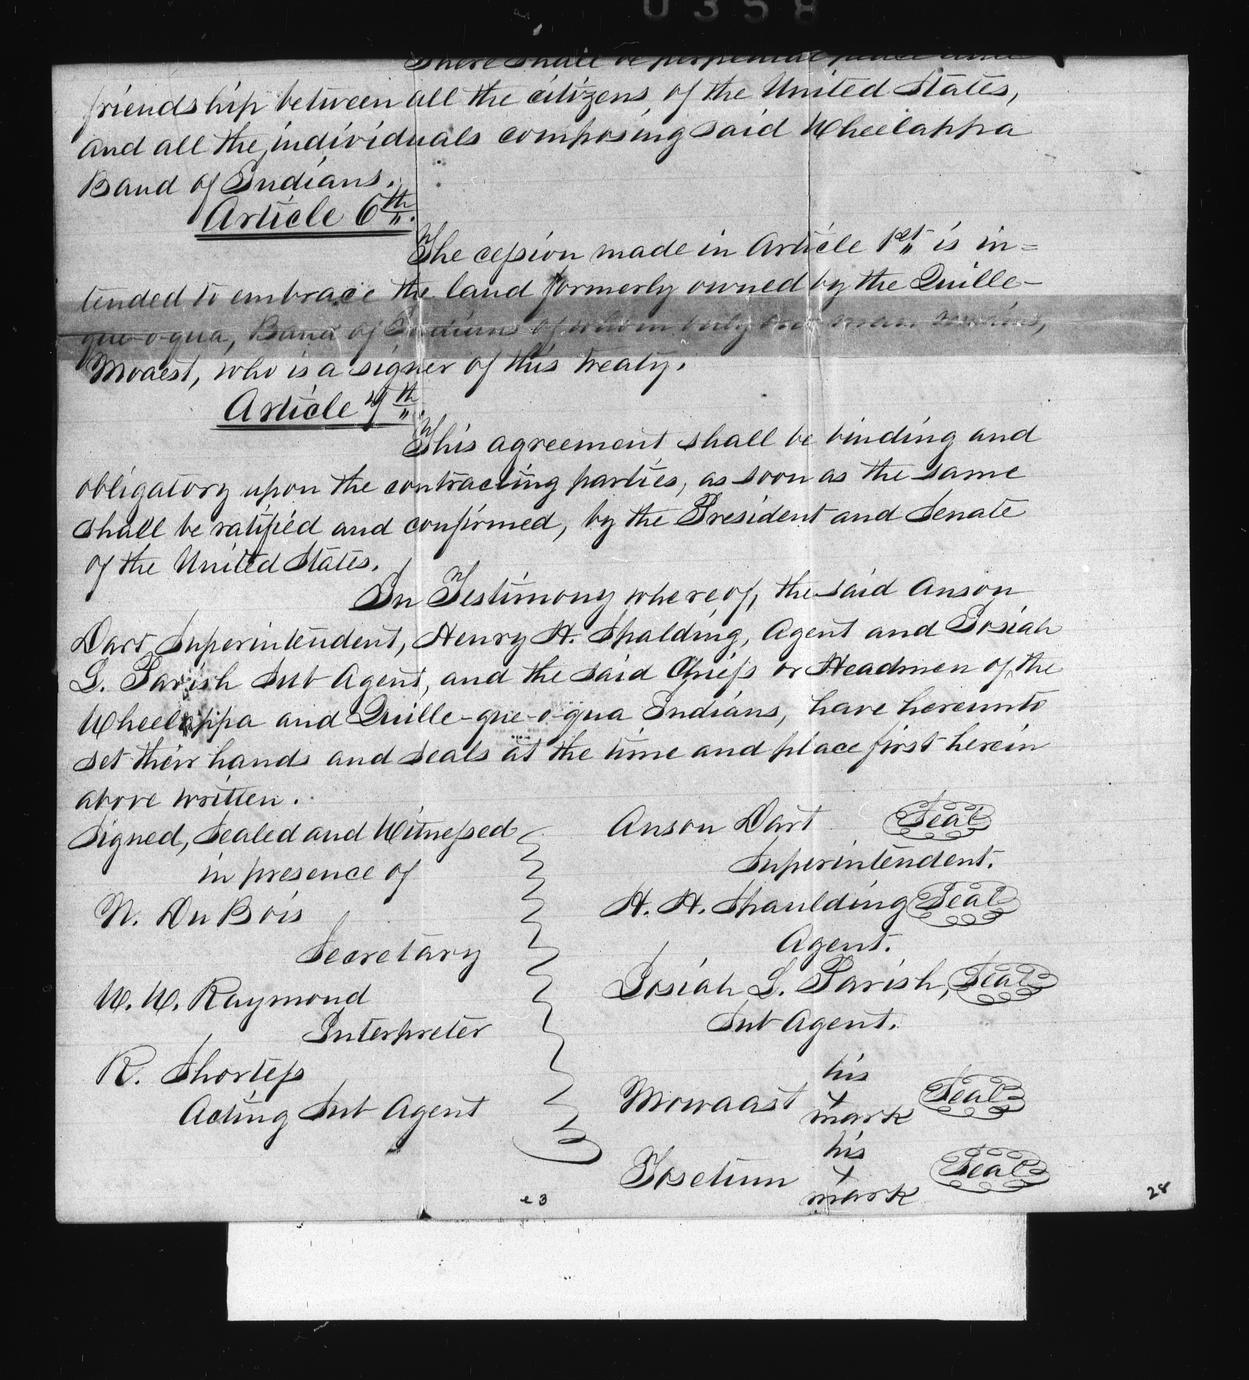 0358
There shall be perpetual peace and
friendship between all the citizens of the United States,
and all the individuals composing said Wheelappa
Band of Indians.
Article 6th.
The cession made in Article 1st is in=
tended to embrace the land formerly owned by the Quille-
que-o-qua, Band of Indians of whom only one man remains,
Moaest, who is a signer of this treaty.
Article 7th.
This agreement shall be binding and
obligatory upon the contracting parties, as soon as the same
shall be ratified and confirmed, by the President and Senate
of the United States.
In Testimony whereof, the said Anson
Dart, Superintendent, Henry H. Spalding, Agent and Josiah
L. Parish Sub Agent, and the said Chiefs or Headmen of the
Wheelappa and Quille-que-o-qua Indians, have hereunto
set their hands and seals at the time and place first herein
above written.
Signed, Sealed and Witnessed
in presence of
N. Du Bois
Secretary
W. W. Raymond
Interpreter
R. Shortess
Acting Sub Agent
Anson Dart Seal
Superintendent.
H. H. Spaulding Seal
Agent.
Josiah L. Parish, Seal
Sub Agent.
his
Mowaast x Seal
mark
his
Tosetum x Seal
mark
23
28